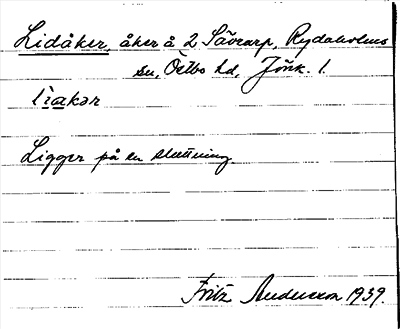 Lidåker, åker å 2 Sävrarp, Rydaholms
sn, Östbo hd, Jönk. l.
li̇̀akər
Ligger på en sluttning.
Fritz Andersson 1939.